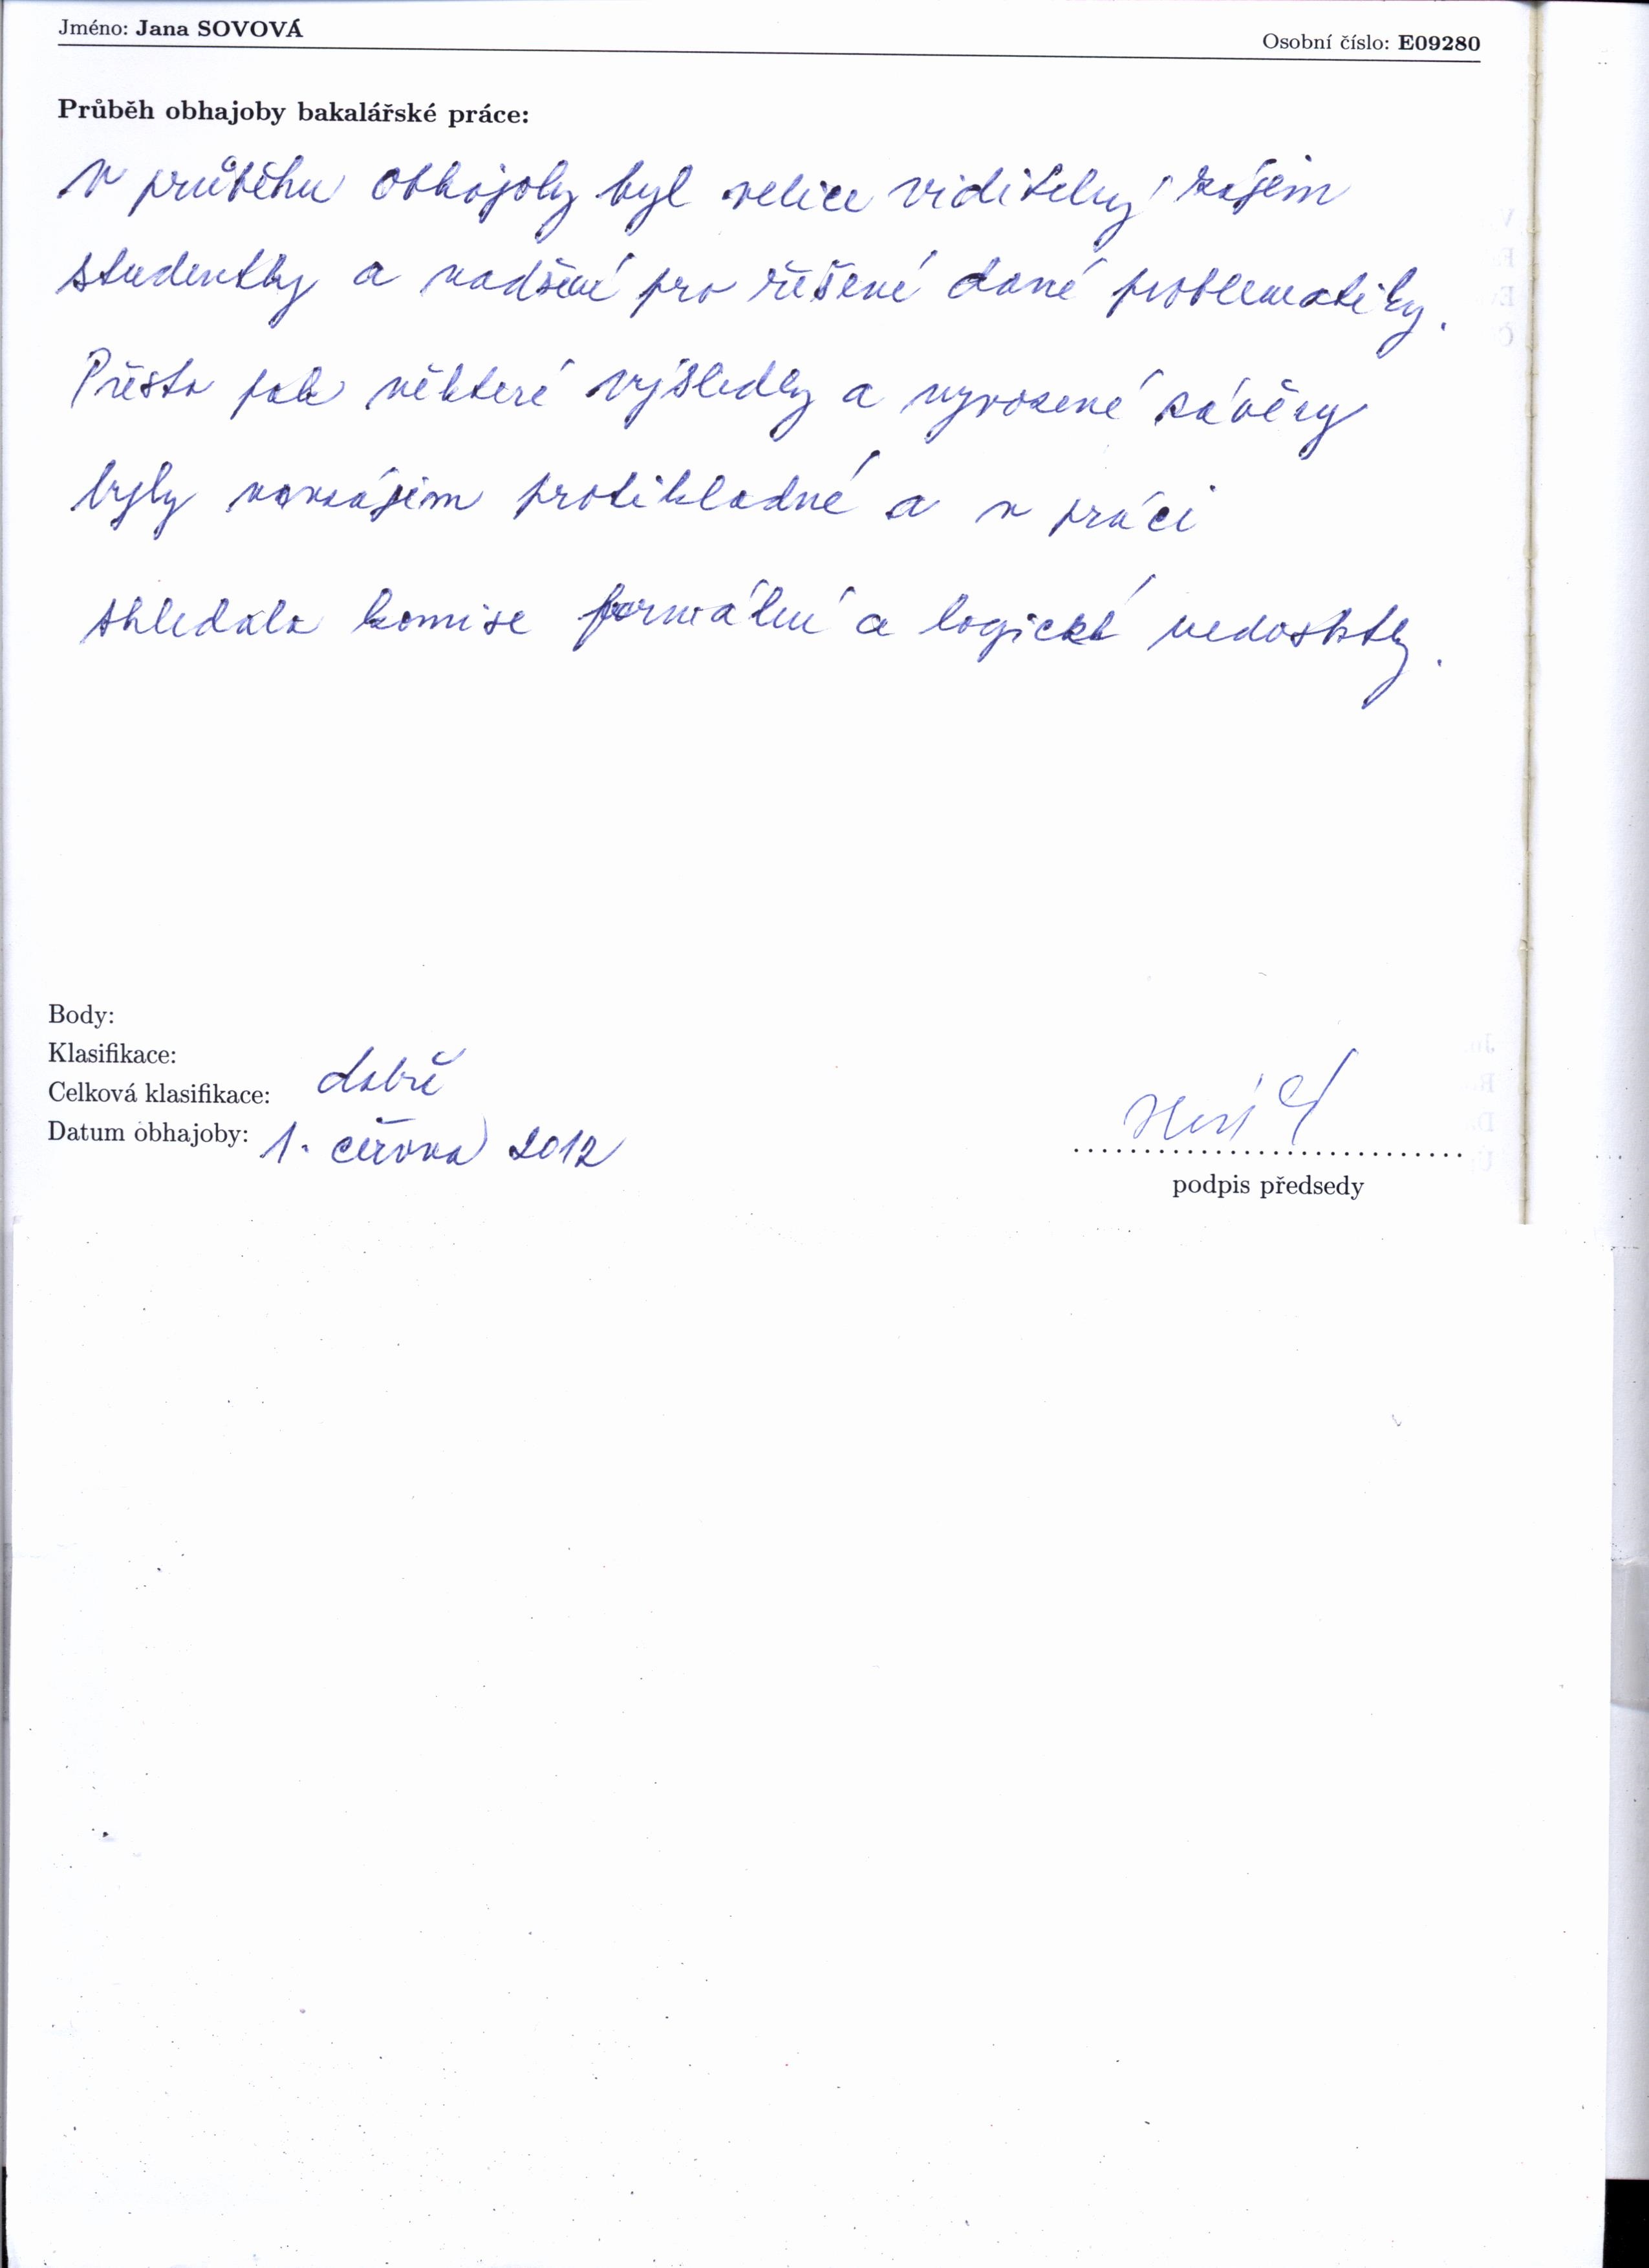 Jméno: Jana SOVOVÁ
Osobní číslo: E09280
Průběh obhajoby bakalářské práce:
V průběhu obhajoby byl velice viditelný zájem
studentky a nadšení pro řešené dané problematiky.
Přesto pak některé výsledky a vyvozené závěry
byly navzájem protikladné a v práci
shledala komise formální a logické nedostatky.
Body:
Klasifikace:
Celková klasifikace: dobře
Datum obhajoby: 1. června 2012
podpis předsedy